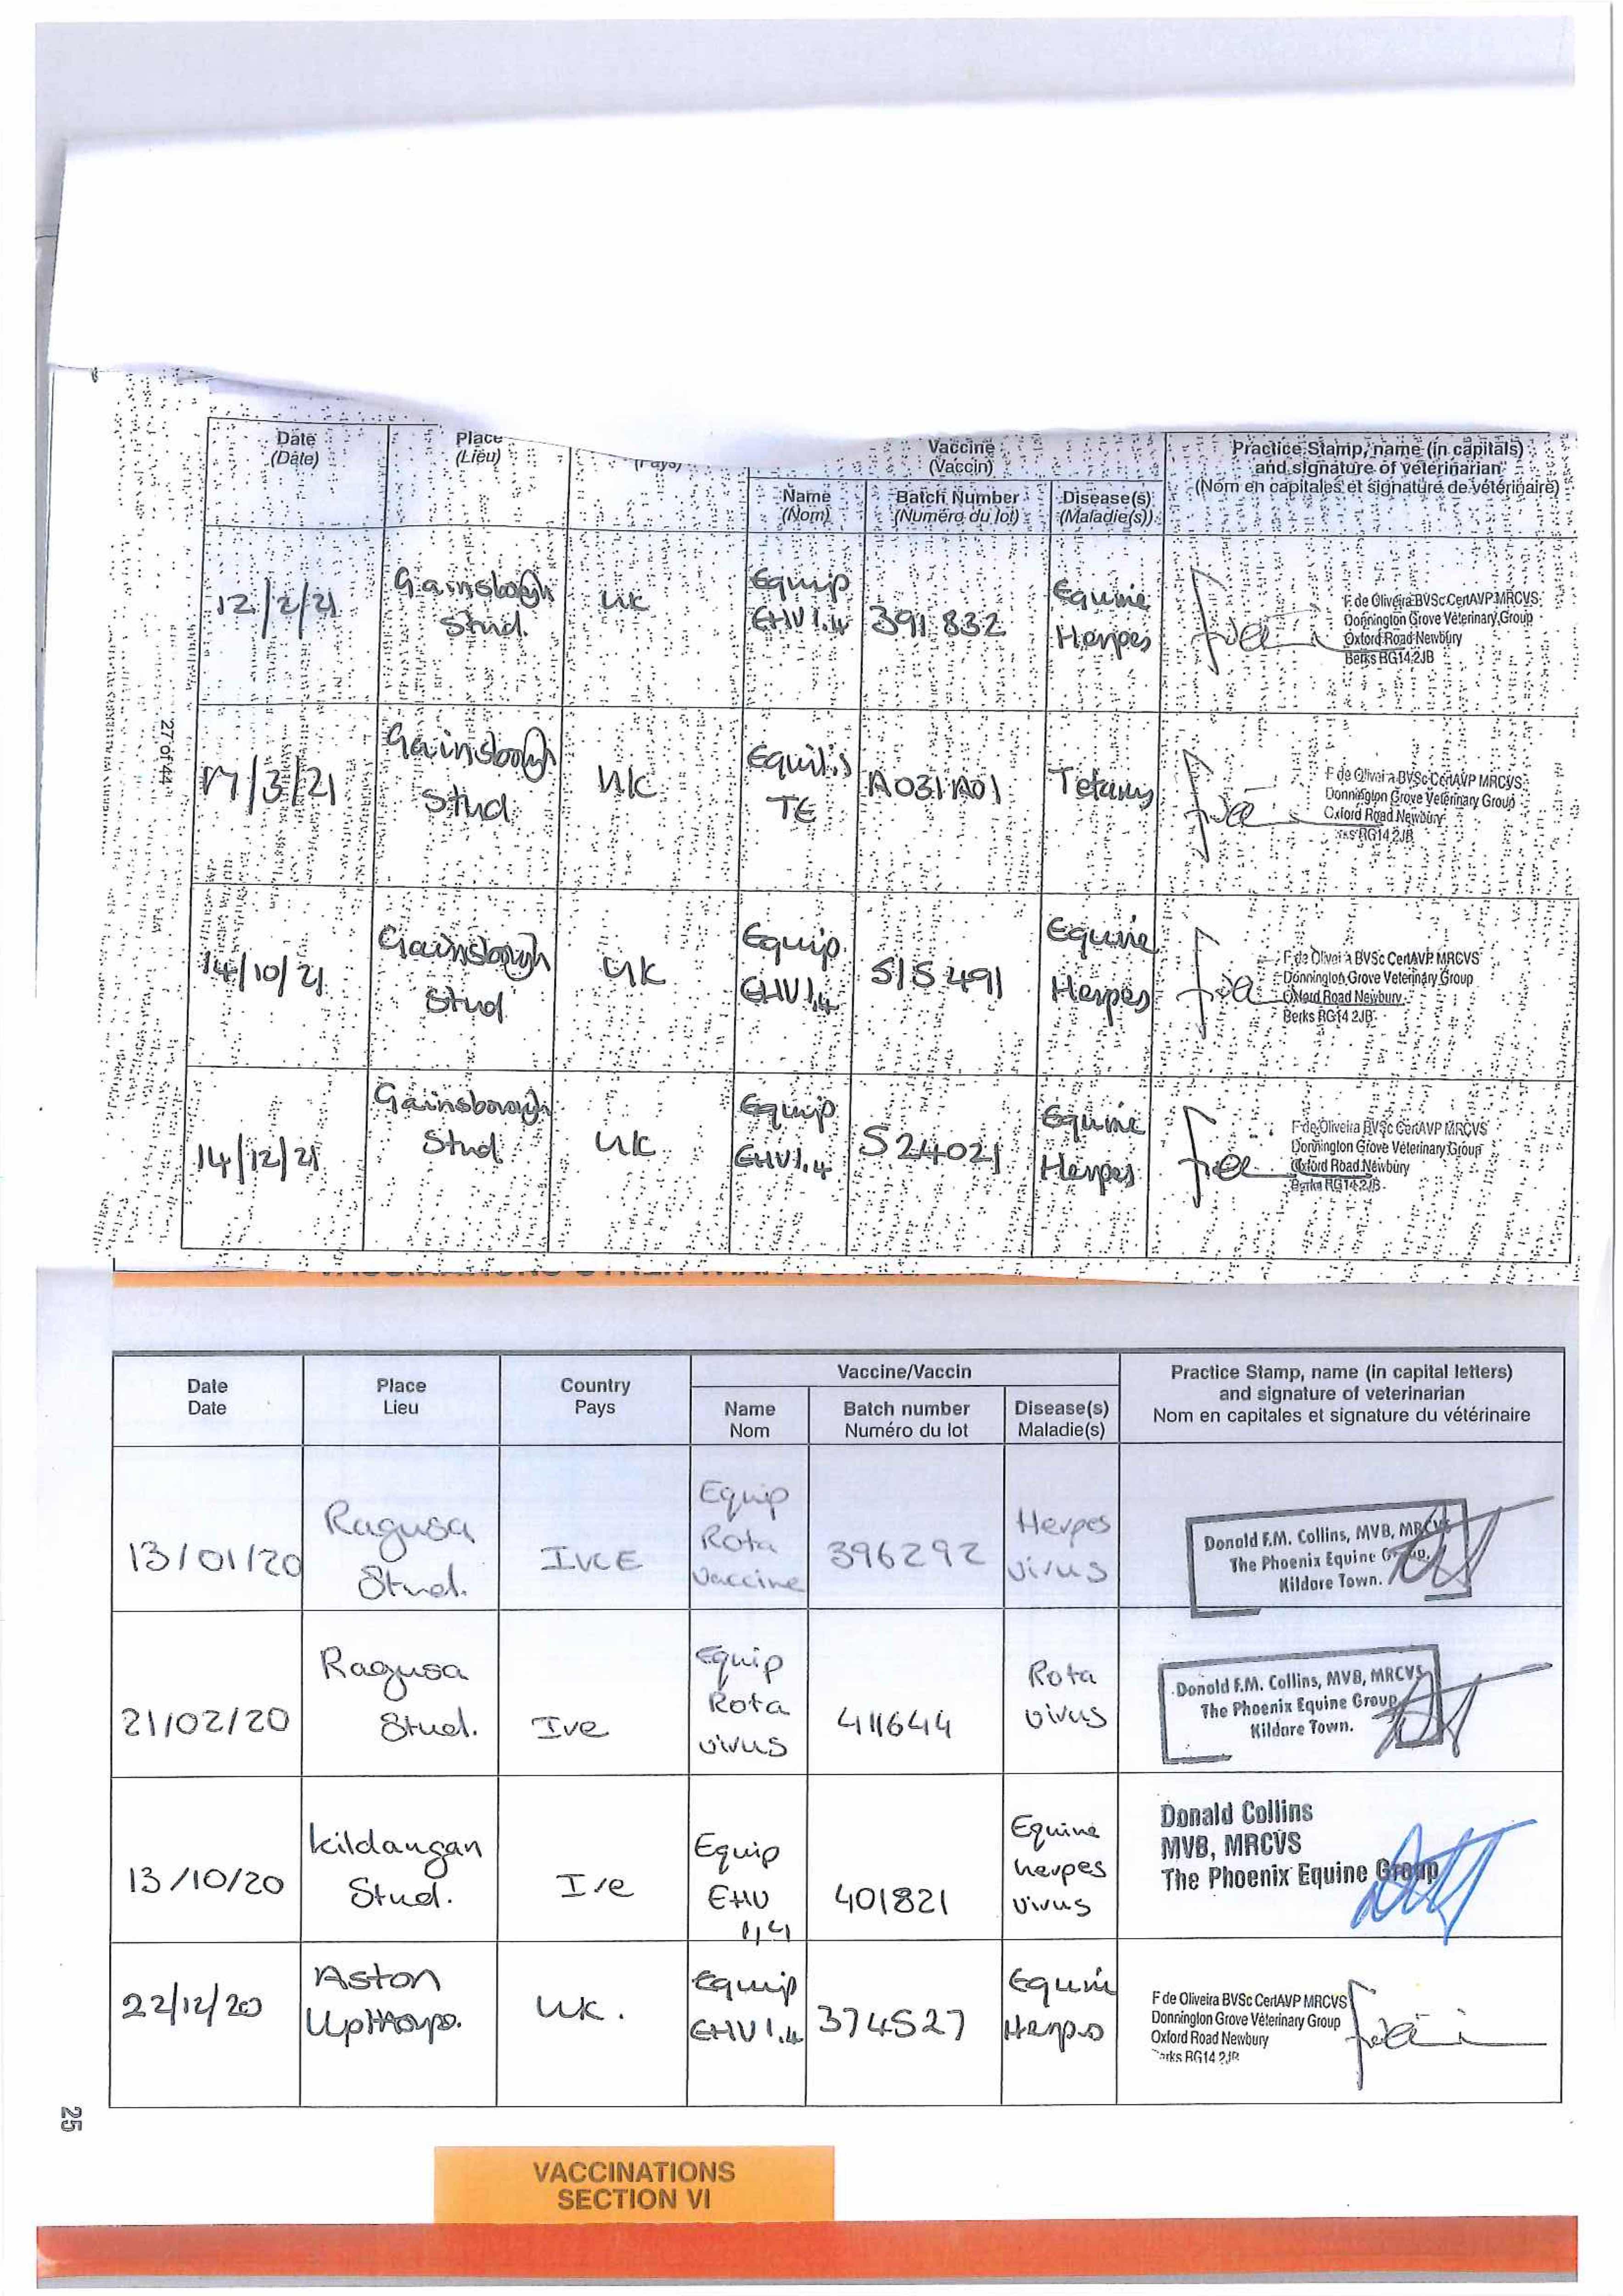 Date
(Date)
Place
(Lieu)
Vaccine
(Vaccin)
Name
(Nom)
Batch Number
(Numéro du lot)
Disease(s)
(Maladie(s))
Practice Stamp, name (in capitals)
and signature of veterinarian
(Nom en capitales et signature de vétérinaire)
12/2/21
Gainsborough
Stud.
UK
Equip
EHV 1.4
391832
Equine
Herpes
F de Oliveira BVSc CertAVP MRCVS
Donnington Grove Veterinary Group
Oxford Road Newbury
Berks RG14 2JB
27 of 44
17/3/21
Gainsborough
Stud
UK
Equilis
TE
A031A01
Tetanus
F de Oliveira BVSc CertAVP MRCVS
Donnington Grove Veterinary Group
Oxford Road Newbury
RG14 2JB
14/10/21
Gainsborough
Stud
UK
Equip
EHV 1,4
515491
Equine
Herpes
F de Oliveira BVSc CertAVP MRCVS
Donnington Grove Veterinary Group
Oxford Road Newbury
Berks RG14 2JB
14/12/21
Gainsborough
Stud
UK
Equip
EHV 1.4
524021
Equine
Herpes
F de Oliveira BVSc CertAVP MRCVS
Donnington Grove Veterinary Group
Oxford Road Newbury
Berks RG14 2JB
Date
Date
Place
Lieu
Country
Pays
Vaccine/Vaccin
Name
Nom
Batch number
Numéro du lot
Disease(s)
Maladie(s)
Practice Stamp, name (in capital letters)
and signature of veterinarian
Nom en capitales et signature du vétérinaire
13/01/20
Ragusa
Stud.
IRE
Equip
Rota
Vaccine
396292
Herpes
virus
Donald F.M. Collins, MVB, MRCVS
The Phoenix Equine Group,
Kildare Town.
21/02/20
Ragusa
Stud.
Ire
Equip
Rota
virus
411644
Rota
virus
Donald F.M. Collins, MVB, MRCVS
The Phoenix Equine Group
Kildare Town.
13/10/20
Kildangan
Stud.
Ire
Equip
EHV
1,4
401821
Equine
herpes
virus
Donald Collins
MVB, MRCVS
The Phoenix Equine Group
22/12/20
Aston
Upthorpe.
UK.
Equip
EHV 1.4
374527
Equin
Herpes
F de Oliveira BVSc CertAVP MRCVS
Donnington Grove Veterinary Group
Oxford Road Newbury
RG14 2JB
25
VACCINATIONS
SECTION VI